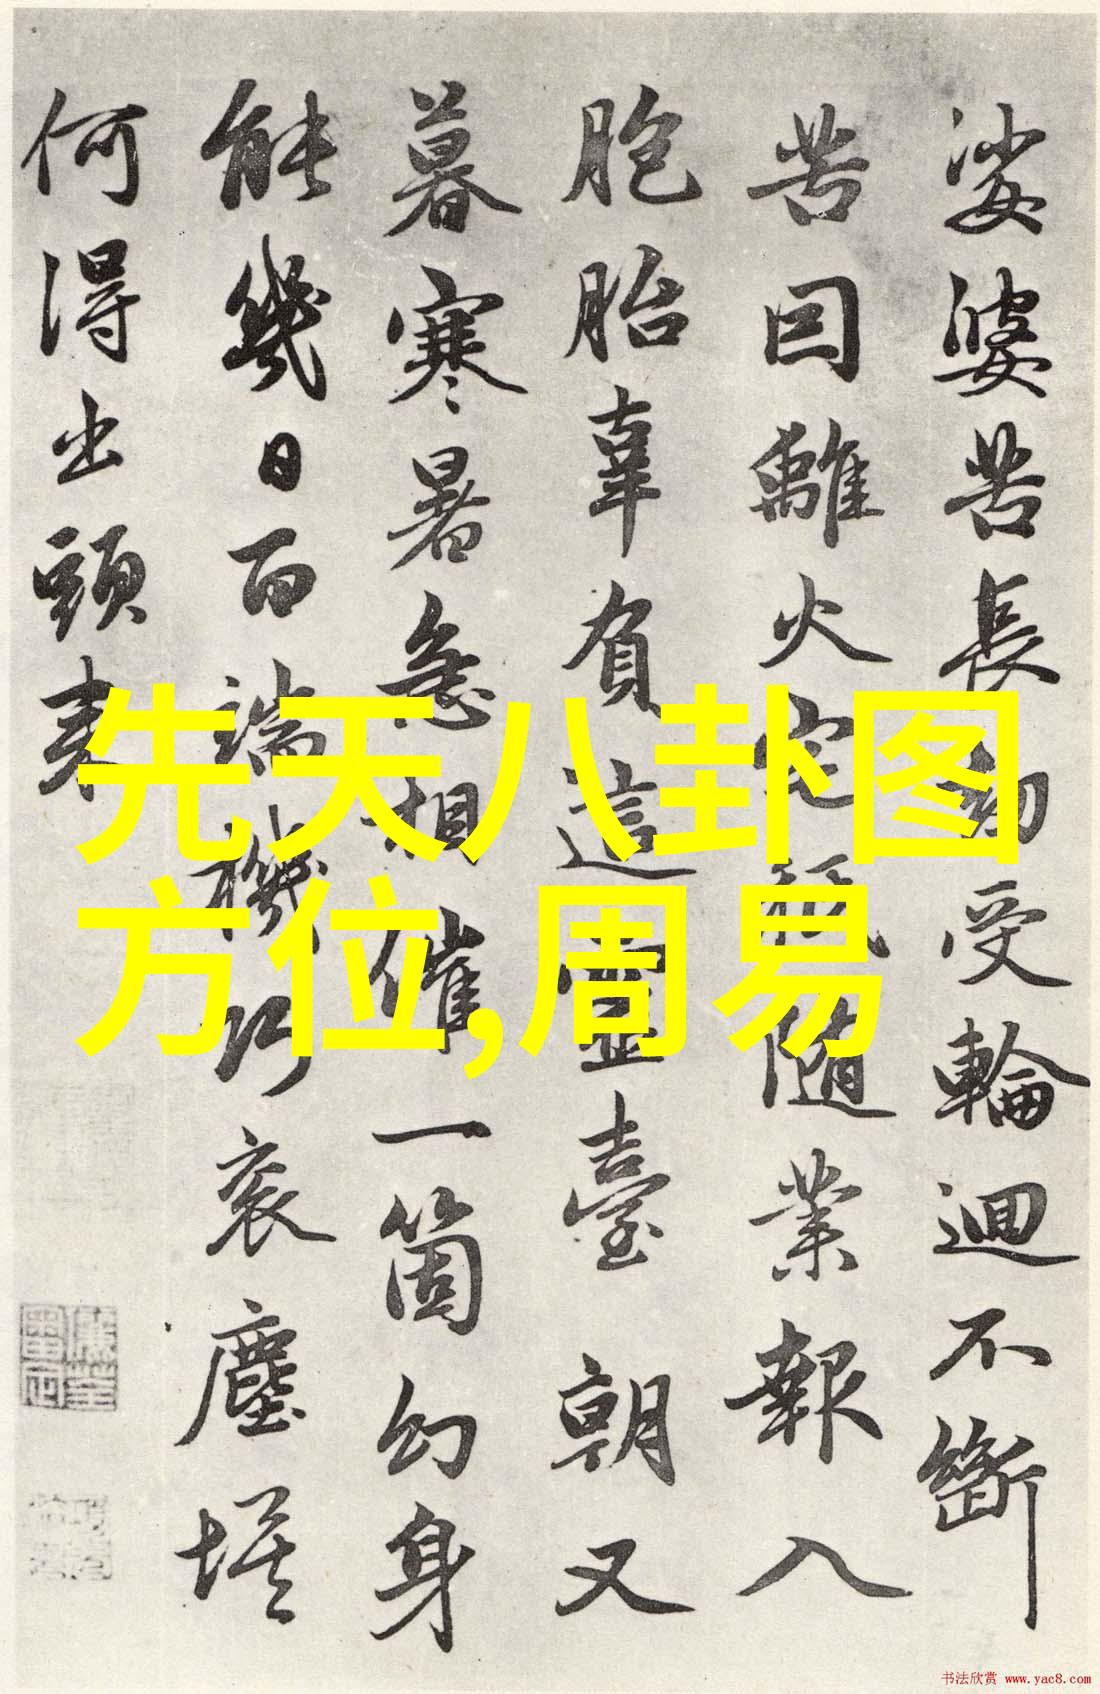 娑婆苦長劫受輪迴不斷
苦因離火宅
隨業報入
胞胎辜負這靈臺朝又
暮寒暑急相催一箇幻身
能幾日百端機巧衮塵埃
何得出頭来
先天八卦图
方位,周易
书法欣赏 www.yac8.com